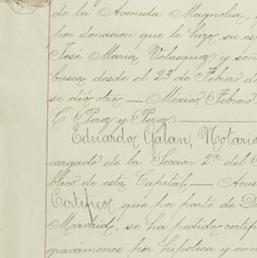 de la Avenida Magnolia,
por donacion que le hizo su es
José Maria Velasquez y señ
busca desde el 2º de Febrero de
se dio otra — Mexico Febrero
C. Perez y Perez
Eduardo Galan, Notario
cargado de la Seccion 2ª del
blico de esta Capital — Acus
Certifico, que por parte de D
Madrid, se ha pedido certifi
gravámenes por hipoteca y